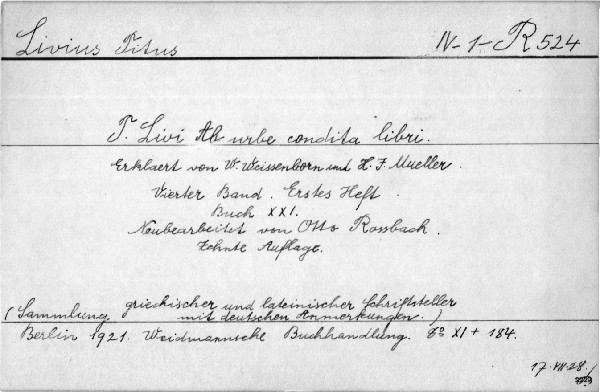 Livius Titus IV-1-R 524
T. Livi Ab urbe condita libri.
Erklaert von W. Weissenborn und H. J. Mueller.
Vierter Band. Erstes Heft.
Buch XXI.
Neubearbeitet von Otto Rossbach.
Zehnte Auflage.
(Sammlung griechischer und lateinischer Schriftsteller
mit deutschen Anmerkungen.)
Berlin 1921. Weidmannsche Buchhandlung. 8° XI + 184.
17.VII 28./